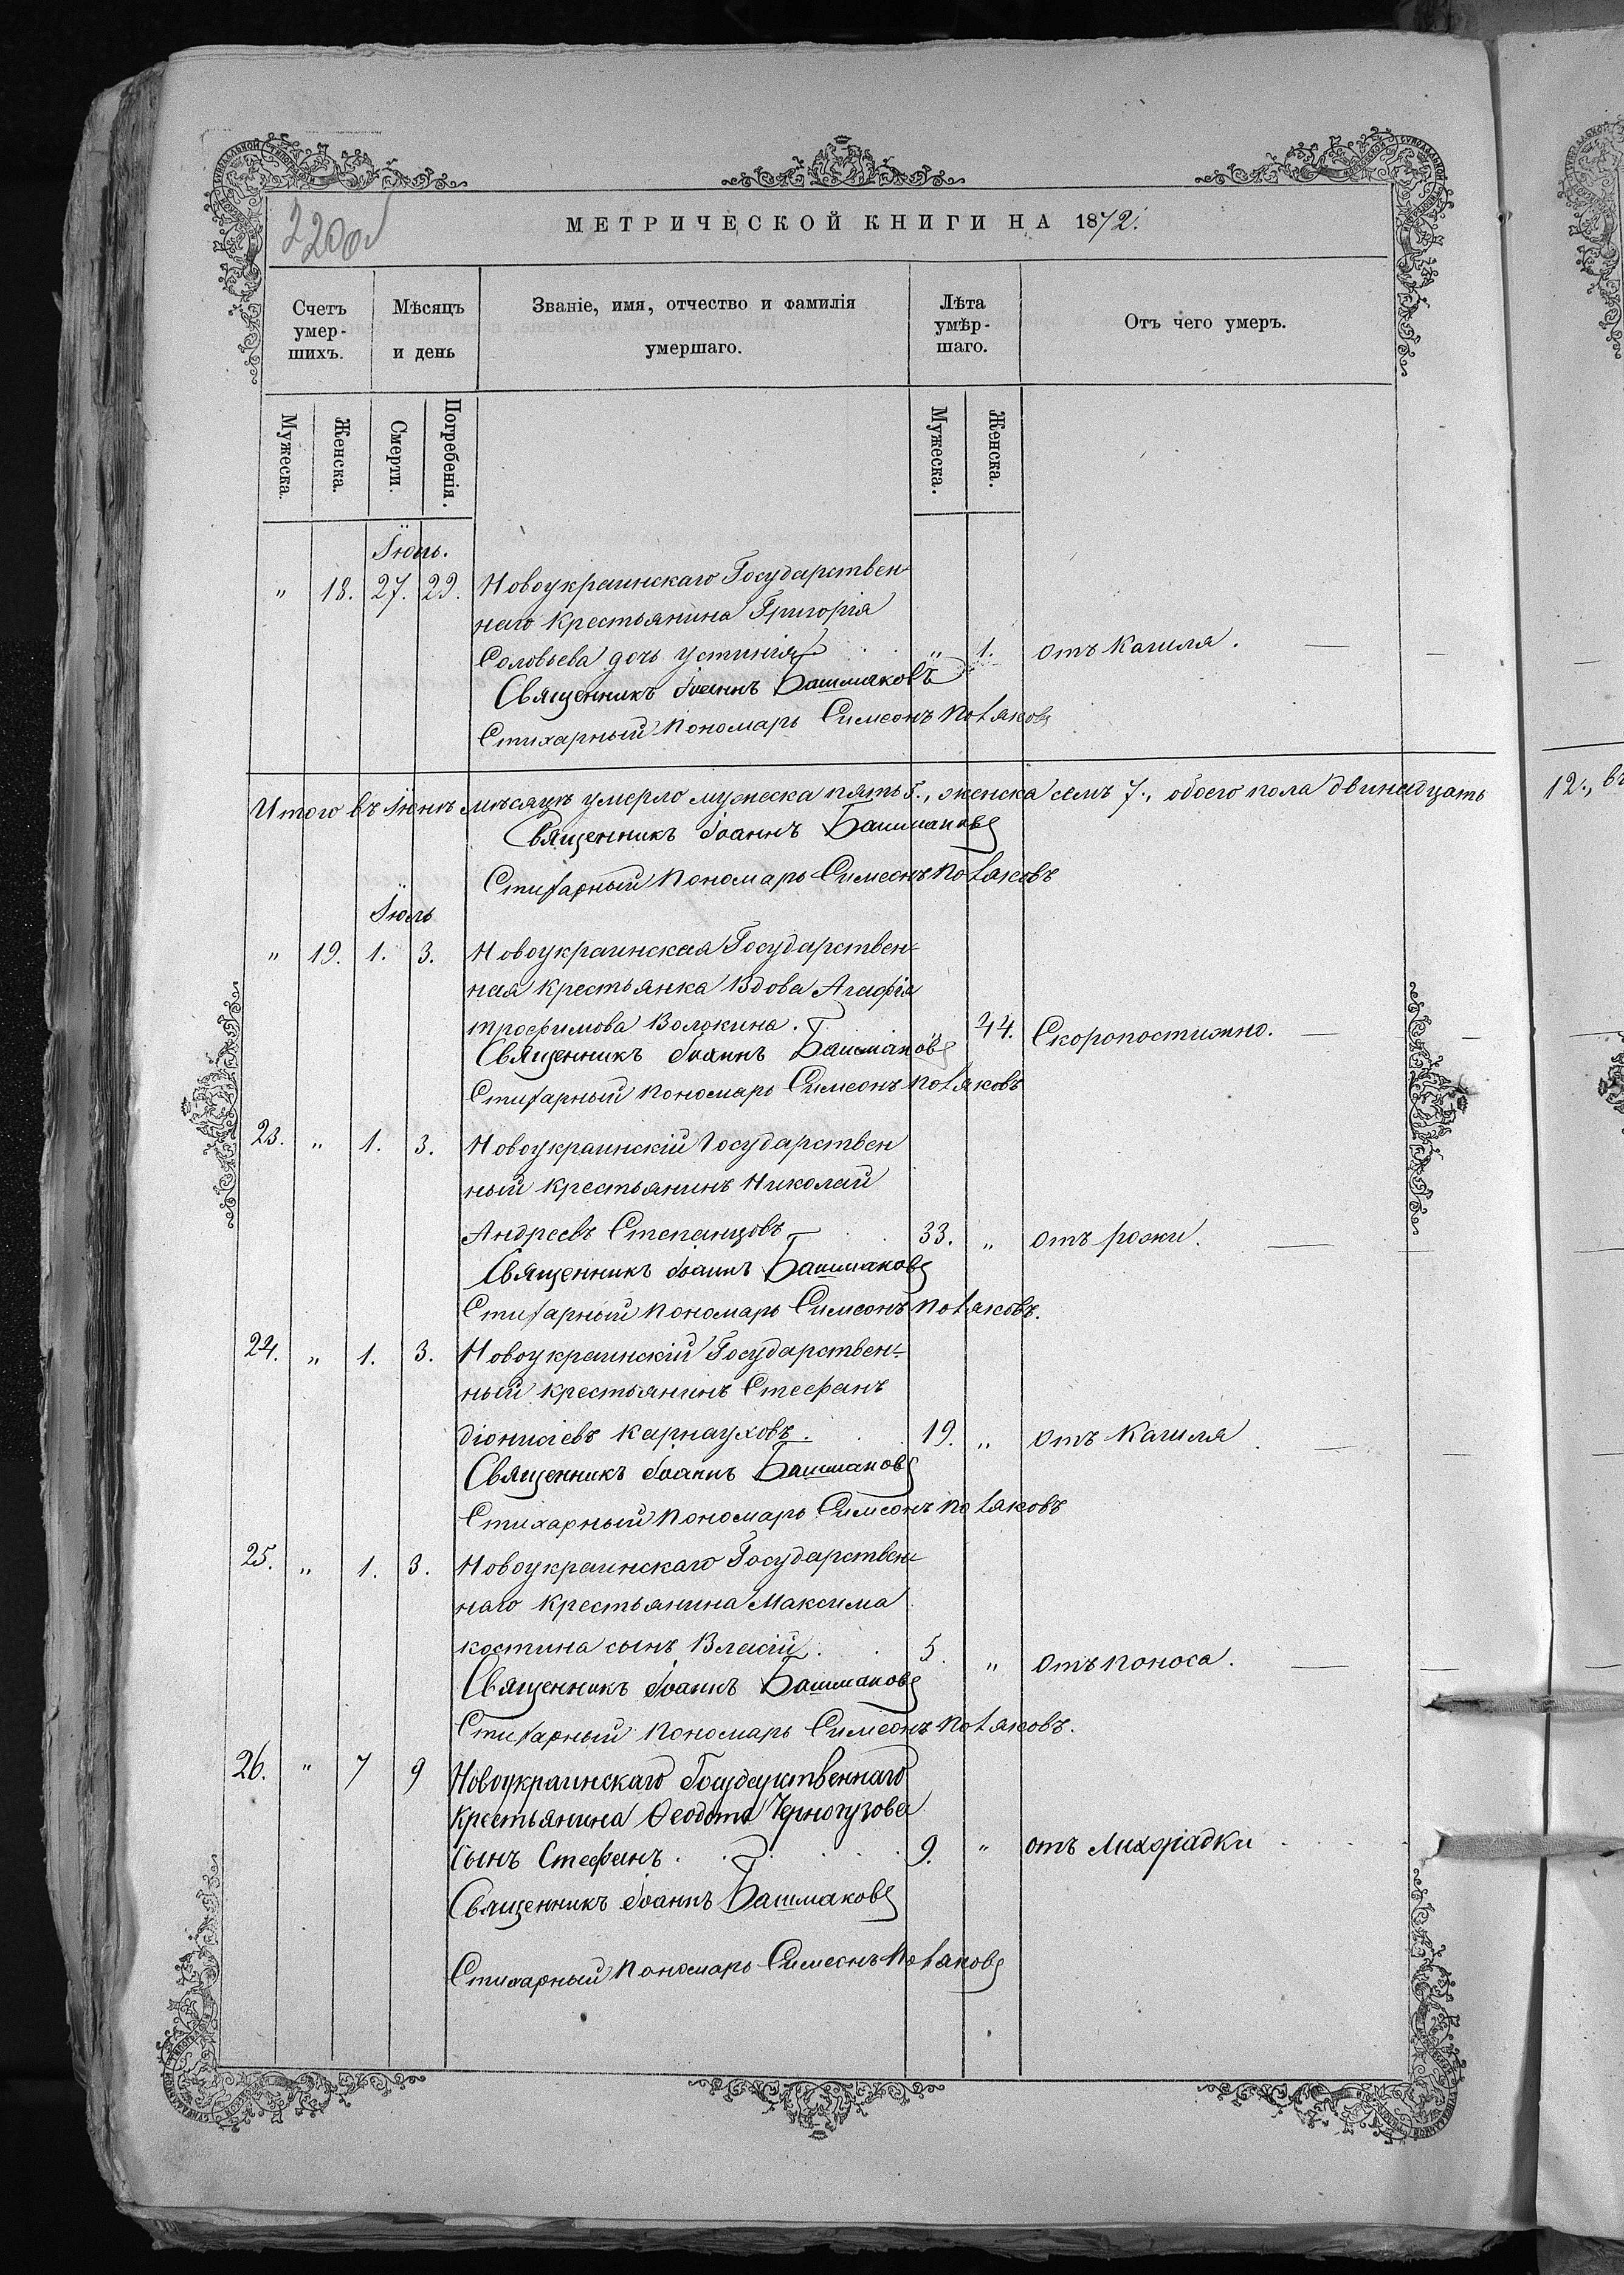 220об
МЕТРИЧЕСКОЙ КНИГИ НА 1872.
Счетъ умер-шихъ.
Мѣсяцъ и день
Званіе, имя, отчество и фамилія умершаго.
Лѣта умѣр-шаго.
Отъ чего умеръ.
Мужеска.
Женска.
Смерти.
Погребенія.
Мужеска.
Женска.
Іюнь.
" 18. 27. 29. Новоукраинскаго Государствен-
наго крестьянина Григорія
Соловьева дочь Устинія " 1. отъ Кашля.
Священникъ Іоаннъ Башмаковъ
Стихарный Пономарь Симеонъ Поляковъ
Итого въ Іюнѣ мѣсяцѣ умерло мужеска пять 5., женска семь 7., обоего пола двинадцать 12., въ
Священникъ Іоаннъ Башмаковъ
Стихарный Пономарь Симеонъ Поляковъ
Іюль
" 19. 1. 3. Новоукраинская Государствен-
ная крестьянка Вдова Агафія
трофимова Волокина. " 44. Скоропостижно.
Священникъ Іоаннъ Башмаковъ
Стихарный Пономарь Симеонъ Поляковъ
23. " 1. 3. Новоукраинскій Государствен
ный крестьянинъ Николай
Андреевъ Степанцовъ 33. " отъ рожи.
Священникъ Іоаннъ Башмаковъ
Стихарный Пономарь Симеонъ Поляковъ.
24. " 1. 3. Новоукраинскій Государствен-
ный крестьянинъ Стефанъ
діонисіевъ Карнауховъ. 19. " Отъ Кашля
Священникъ Іоаннъ Башмаковъ
Стихарный Пономарь Симеонъ Поляковъ
25. " 1. 3. Новоукраинскаго Государствен-
наго крестьянина Максима
костина сынъ Власій. 5. " Отъ поноса.
Священникъ Іоаннъ Башмаковъ
Стихарный Пономарь Симеонъ Поляковъ.
26. " 7 9 Новоукраинскаго Государственнаго
крестьянина Ѳеодота Черногузова
Сынъ Стефанъ. 9. " отъ Лихорадки
Священникъ Іоаннъ Башмаковъ
Стихарный Пономарь Симеонъ Поляковъ